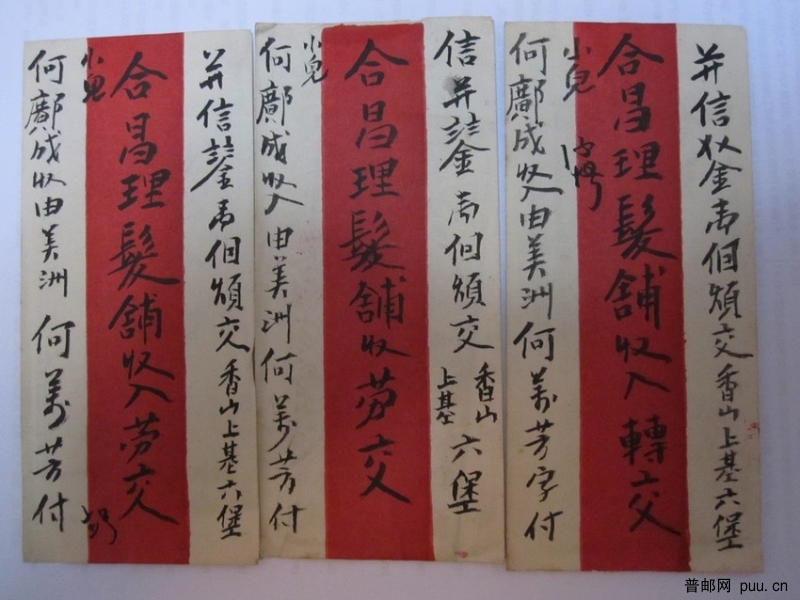 并信鎏帋佪煩交香山上基六堡
合昌理髮舖收入劳交
小兒
何鄺成收由美洲何萬芳付
信并鎏帋佪煩交香山上基六堡
合昌理髮舖收劳交
小兒
何鄺成收入由美洲何萬芳付
并信金帋佪煩交香山上基六堡
合昌理髮舖收入轉交
小兒
何鄺成收入由美洲何萬芳字付
普邮网 puu.cn